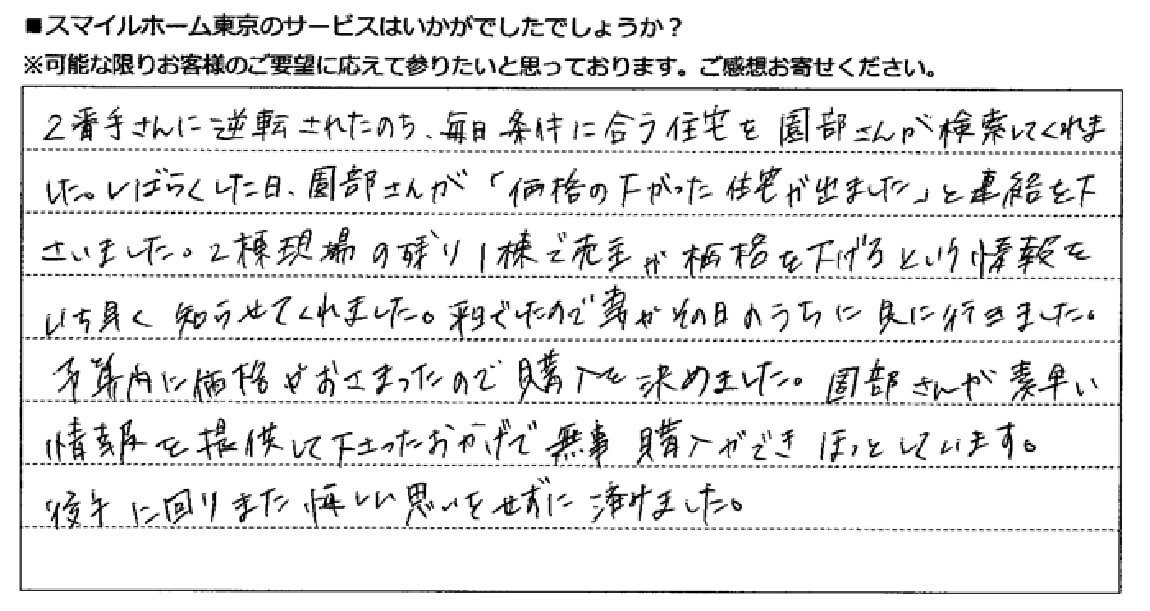 ■スマイルホーム東京のサービスはいかがでしたでしょうか？
※可能な限りお客様のご要望に応えて参りたいと思っております。ご感想お寄せください。
2番手さんに逆転されたのち、毎日条件に合う住宅を園部さんが検索してくれま
した。しばらくした日、園部さんが「価格の下がった住宅が出ました」と連絡を下
さいました。2棟現場の残り1棟で売主が価格を下げるという情報を
いち早く知らせてくれました。平日でしたので妻がその日のうちに見に行きました。
予算内に価格がおさまったので購入を決めました。園部さんが素早い
情報を提供して下さったおかげで無事購入ができほっとしています。
後手に回りまた悔しい思いをせずに済みました。